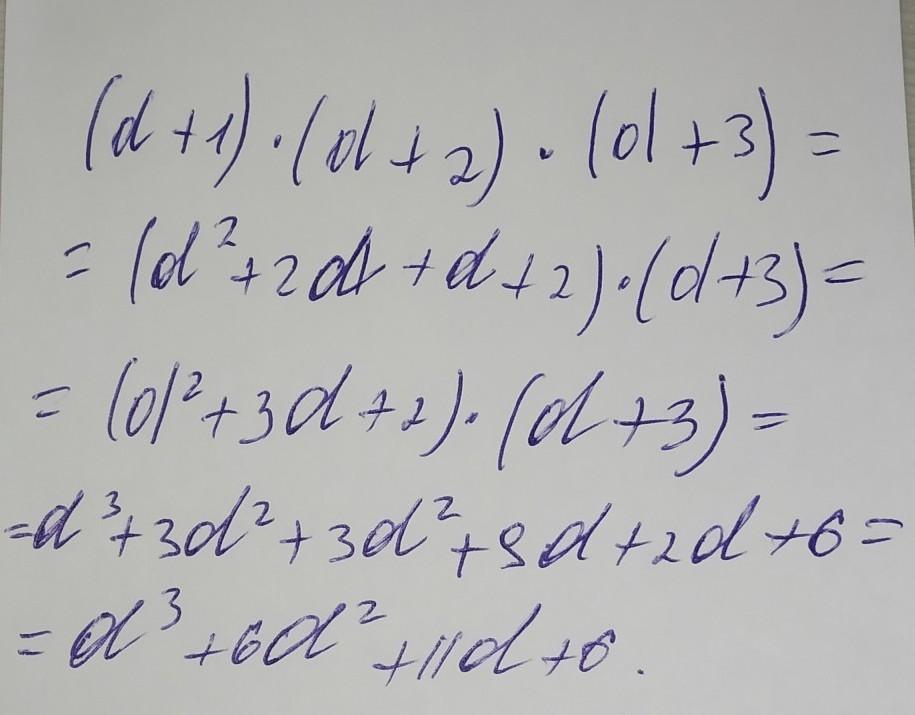 (d+1)·(d+2)·(d+3)=
=(d²+2d+d+2)·(d+3)=
=(d²+3d+2)·(d+3)=
=d³+3d²+3d²+9d+2d+6=
=d³+6d²+11d+6.